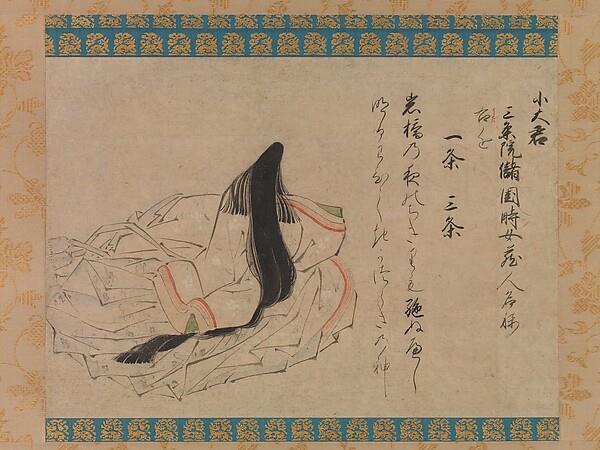 小大君
三条院儲時女蔵人
一条 三条
岩橋乃夜のちきりも絶ぬへし
明るわひしきかつらきの神